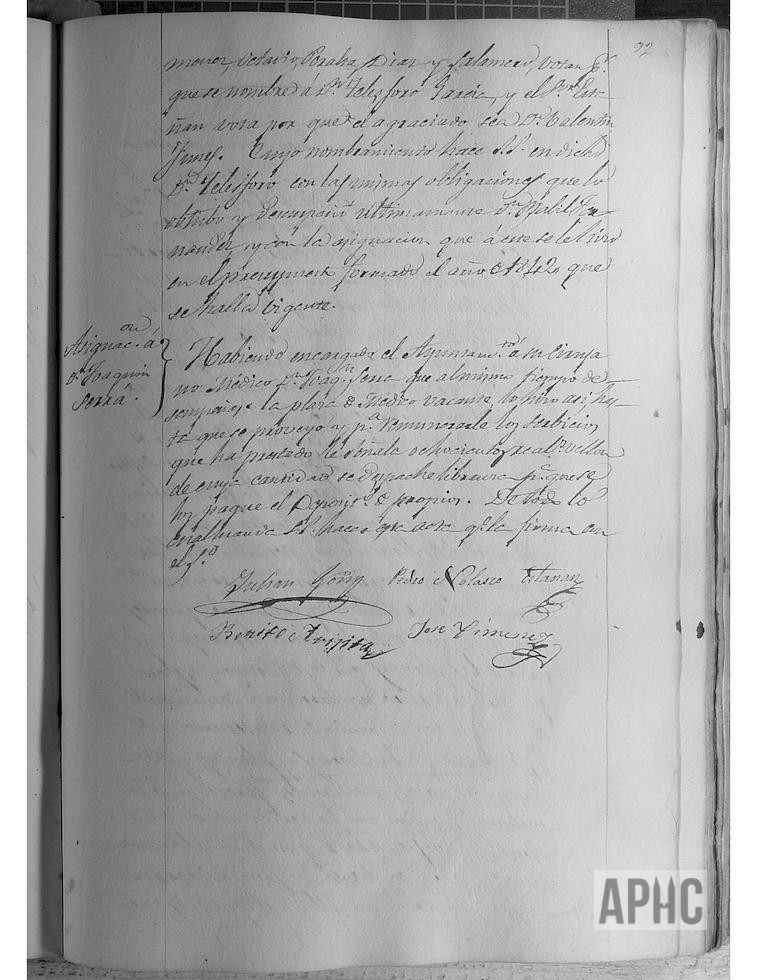 92
menez, Octavio, Peralta Diaz y Salamero, votan pr.
que se nombre á Dn. Telesforo Garcia, y el Sor. Esta-
ñan vota por que el agraciado sea Dn. Valentin
Funes. Cuyo nombramiento hace S.S. en dicho
Dn. Telesforo con las mismas obligaciones que lo
obtubo y desempeñó ultimamente Dn.
nandez, y con la asignacion que á este se le
en el presupuesto formado el año de 1842, que
se halla vigente.
Asignacon. á
Dn. Joaquin
Serra.
Habiendo encargado el Ayuntamto. á su Ciruja
no Médico Dn. Joaqn. Serra que al mismo tiempo de-
sempeñase la plaza de Medico vacante, lo hizo asi, has-
ta que se proveyo y pa. remunerarle los serbicios
que ha prestado le señala ochocientos reals. vellon
de cuya cantidad se despache libranza pa. que se
los pague el Deposito. de propios. De todo lo
cual manda S.S. hacer esta acta qe. la firma con
el So.
Julian Goñy Pedro Nolasco Estañan
Benito Arizta Jose Ximenez
APHC